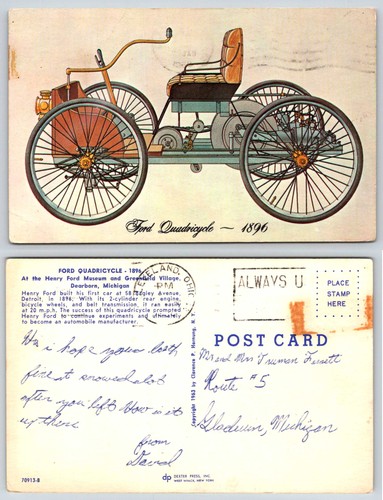 Ford Quadricycle ~ 1896
FORD QUADRICYCLE - 1896
At the Henry Ford Museum and Greenfield Village,
Dearborn, Michigan
Henry Ford built his first car at 58 Bagley Avenue,
Detroit, in 1896. With its 2-cylinder rear engine,
bicycle wheels, and belt transmission, it ran easily
at 20 m.p.h. The success of this quadricycle prompted
Henry Ford to continue experiments and ultimately
to become an automobile manufacturer.
CLEVELAND, OHIO
PM
ALWAYS U
PLACE
STAMP
HERE
POST CARD
Hi, I hope your both
fine it snowed a lot
after you left. How is it
up there
from
David
Mr and Mrs Truman
Route #5
Gladwin, Michigan
78913-B
dp
DEXTER PRESS, INC.
WEST NYACK, NEW YORK